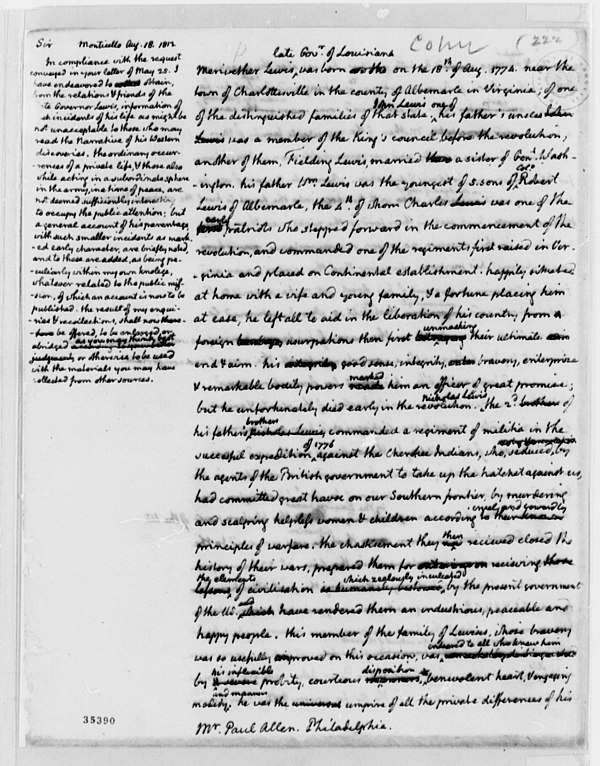 Sir Monticello Aug. 18. 1812
In compliance with the request
conveyed in your letter of May 25. I
have endeavored to obtain
from the relations & friends of the
late Governor Lewis, information of
such incidents of his life as might be
not unacceptable to those who may
read the Narrative of his Western
discoveries. the ordinary occur-
rences of a private life, & those also
while acting in a subordinate sphere
in the army, in a time of peace, are
not deemed sufficiently interesting
to occupy the public attention; but
a general account of his parentage,
with such smaller incidents as mark-
ed early character, are briefly noted,
and to these are added, as being pe-
culiarly within my own knolege,
whatever related to the public mis-
sion, of which an account is now to be
published. the result of my enqui-
ries & recollections, shall now
be offered, to be enlarged or
abridged as you may think best
or otherwise to be used
with the materials you may have
collected from other sources.
late Govr. of Louisiana
Meriwether Lewis, was born on the 18th of Aug. 1774. near the
town of Charlottesville in the county of Albemarle in Virginia; of one
of the distinguished families of that state. John Lewis one of his father's uncles
was a member of the King's council before the revolution,
another of them, Fielding Lewis, married a sister of Genl. Wash-
-ington. his father Wm. Lewis was the youngest of 5. sons of Colo. Robert
Lewis of Albemarle, the 4th. of whom Charles was one of the
early patriots who stepped forward in the commencement of the
revolution, and commanded one of the regiments first raised in Vir-
-ginia and placed on Continental establishment. happily situated
at home with a wife and young family, & a fortune placing him
at ease, he left all to aid in the liberation of his country, from
foreign usurpations then first unmasking their ultimate
end & aim. his good sense, integrity, bravery, enterprize
& remarkable bodily powers marked him an officer of great promise;
but he unfortunately died early in the revolution. Nicholas Lewis the 2d. of
his father's brothers commanded a regiment of militia in the
succesful expedition of 1776 against the Cherokee Indians, who, seduced by
the agents of the British government to take up the hatchet against us,
had committed great havoc on our Southern frontier, by murdering
and scalping helpless women & children according to their cruel and cowardly
principles of warfare. the chastisement they then recieved closed the
history of their wars, prepared them for recieving
the elements of civilisation which zealously inculcated by the present government
of the US. have rendered them an industrious, peaceable and
happy people. this member of the family of Lewises, whose bravery
was so usefully improved on this occasion, was endeared to all who knew him
by his inflexible probity, courteous disposition, benevolent heart, & engaging
modesty and manners. he was the umpire of all the private differences of his
Mr. Paul Allen. Philadelphia.
35390